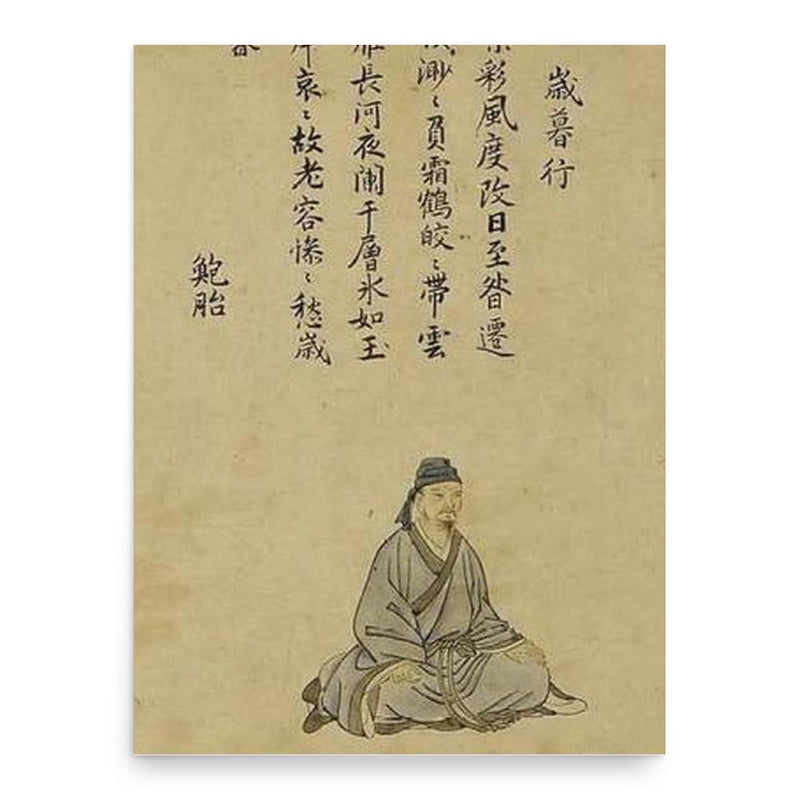 歳暮行
彩風度改日至晷遷
渺〻負霜鶴皎〻帶雲
長河夜闌干層氷如玉
哀〻故老容慘〻愁歳
鮑胎